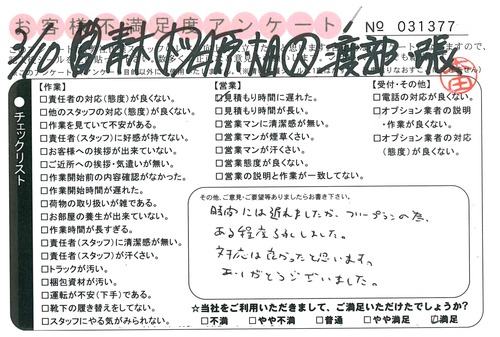 お客様不満足度アンケート
No 031377
チェックリスト
【作業】
□責任者の対応(態度)が良くない。
□他のスタッフの対応(態度)が良くない。
□作業を見ていて不安がある。
□責任者(スタッフ)に好感が持てない。
□お客様への挨拶が出来ていない。
□ご近所への挨拶・気遣いが無い。
□作業開始前の内容確認がなかった。
□作業開始時間が遅れた。
□荷物の取り扱いが雑である。
□お部屋の養生が出来ていない。
□作業時間が長すぎる。
□責任者(スタッフ)に清潔感が無い。
□責任者(スタッフ)が汗くさい。
□トラックが汚い。
□梱包資材が汚い。
□運転が不安(下手)である。
□靴下の履き替えをしてない。
□スタッフにやる気がみられない。
【営業】
☑見積もり時間に遅れた。
□見積もり時間が長い。
□営業マンに清潔感が無い。
□営業マンが煙草くさい。
□営業マンが汗くさい。
□営業態度が良くない。
□営業の説明と作業が一致してない。
【受付・その他】
□電話の対応が良くない。
□オプション業者の説明
・作業が良くない。
□オプション業者の対応
(態度)が良くない。
その他、ご意見・ご要望等ありましたらお書き下さい。
時間には遅れましたが、フリープランの為、
ある程度
しました。
対応は良かったと思います。
ありがとうございました。
☆当社をご利用いただきまして、ご満足いただけたでしょうか?
□不満 □やや不満 □普通 □やや満足 ☑満足